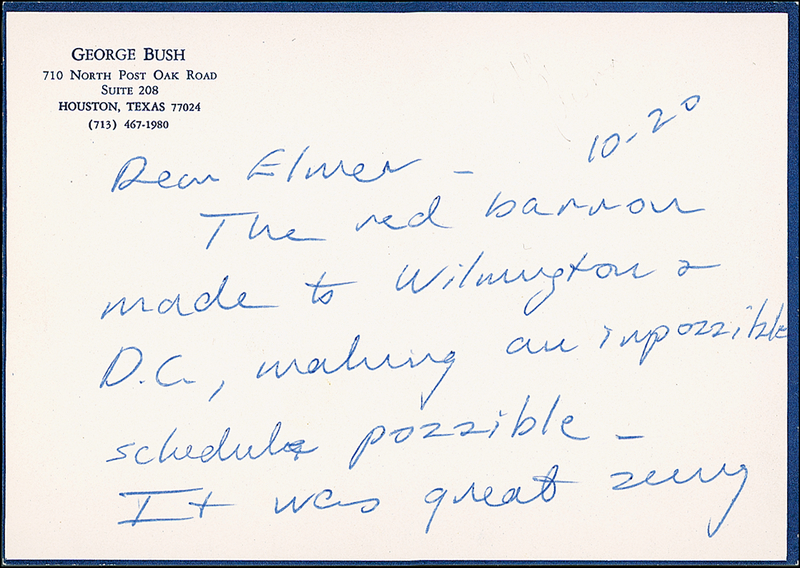 GEORGE BUSH
710 NORTH POST OAK ROAD
SUITE 208
HOUSTON, TEXAS 77024
(713) 467-1980
10-20
Dear Elmer -
The red barron
made to Wilmington &
D.C., making an impossible
schedule possible -
It was great seeing